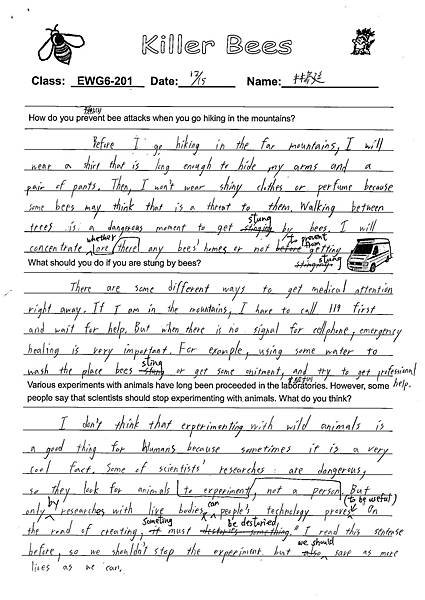 Killer Bees
Class: EWG6-201 Date: 12/15 Name:
How do you prevent bee attacks when you go hiking in the mountains?
Before I go hiking in the far mountains, I will
wear a shirt that is long enough to hide my arms and a
pair of pants. Then, I won't wear shiny clothes or perfume because
some bees may think that is a threat to them. Walking between
trees is a dangerous moment to get stung by bees. I will
concentrate whether there are any bees' homes or not to prevent from getting
stung
What should you do if you are stung by bees?
There are some different ways to get medical attention
right away. If I am in the mountains, I have to call 119 first
and wait for help. But when there is no signal for cellphone, emergency
healing is very important. For example, using some water to
wash the place bees sting or get some ointment, and try to get professional
help.
Various experiments with animals have long been proceeded in the laboratories. However, some
people say that scientists should stop experimenting with animals. What do you think?
I don't think that experimenting with wild animals is
a good thing for humans because sometimes it is a very
cool fact. Some of scientists' researches are dangerous,
so they look for animals to experiment, not a person. But
only by researches with live bodies can people's technology proves (to be useful) On
the road of creating, someting must be destoried." I read this sentence
before, so we shouldn't stop the experiment but we should save as more
lives as we can.